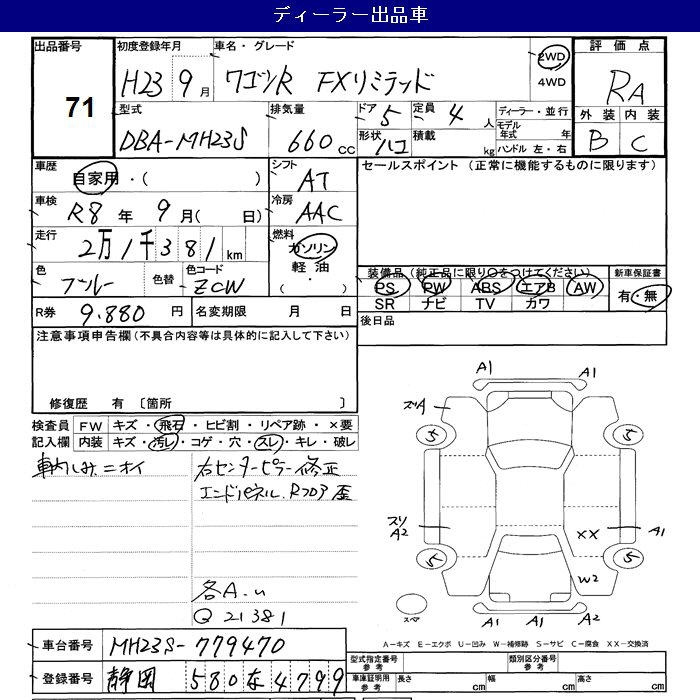 ディーラー出品車
出品番号 71
初度登録年月 H23 9月
車名・グレード ワゴンR FXリミテッド
2WD
4WD
評価点 RA
外装 内装
B C
型式 DBA-MH23S
排気量 660 cc
ドア 5
定員 4 人
形状 ハコ
積載 kg
ディーラー・並行
モデル年式 年
ハンドル 左・右
車歴 自家用・( )
シフト AT
セールスポイント (正常に機能するものに限ります)
車検 R8年 9月( 日)
冷房 AAC
走行 2万1千381km
燃料 ガソリン
軽油
・( )
色 ブルー
色替
色コード ZCW
装備品(純正品に限り○をつけてください)
新車保証書
PS PW ABS エアB AW
SR ナビ TV カワ
有・無
R券 9.880 円
名変期限 月 日
後日品
注意事項申告欄(不具合内容等は具体的に記入して下さい)
修復歴 有 〔箇所 〕
検査員記入欄
FW キズ・飛石・ヒビ割・リペア跡・×要
内装 キズ・汚レ・コゲ・穴・スレ・キレ・破レ
車内しみニオイ
右センターピラー修正
エンドパネル.Rフロア 歪
各A.u
Q 21381
A1 A1
ズリA
5 5
スリ
A2
XX A1
5 5
W2
スペア
A1 A1 A2
A-キズ E-エクボ U-凹み W-補修跡 S-サビ C-腐食 XX-交換済
車台番号 MH23S-779470
登録番号 静岡 580 な 4799
型式指定番号 参考
類別区分番号 参考
車庫証明用 参考
長さ cm 幅 cm 高さ cm